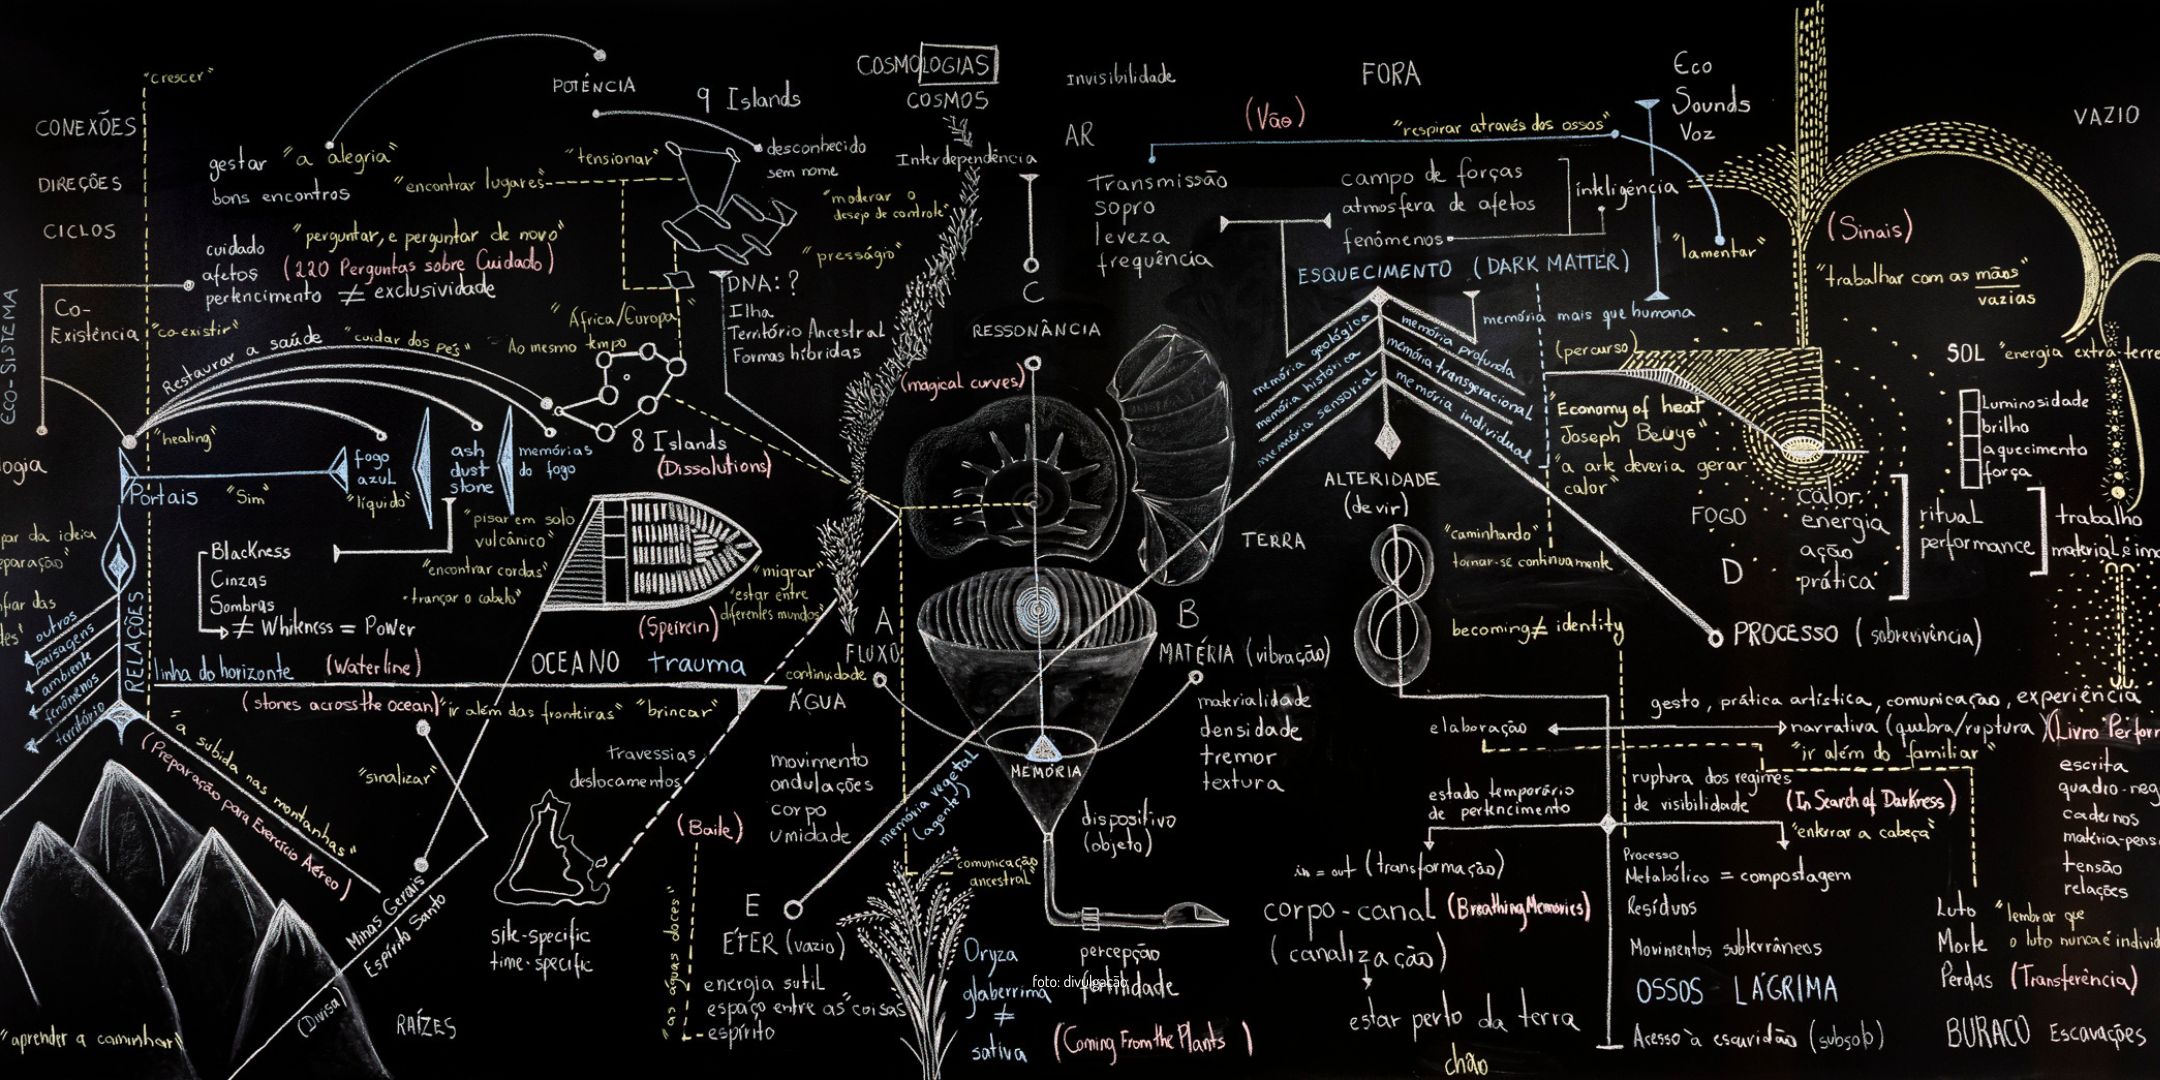 "crescer"
CONEXÕES
DIREÇÕES
CICLOS
ECO-SISTEMA
gestar "a alegria"
bons encontros
POTÊNCIA
9 Islands
desconhecido
sem nome
"tensionar"
"encontrar lugares"
"perguntar, e perguntar de novo"
cuidado
afetos (220 Perguntas sobre Cuidado)
pertencimento ≠ exclusividade
Co-
Existência "co-existir"
Restaurar a saúde
"cuidar dos pés"
"África/Europa"
Ao mesmo tempo
"healing"
DNA: ?
Ilha
Território Ancestral
Formas híbridas
"moderar o
desejo de controle"
"presságio"
COSMOLOGIAS
COSMOS
Interdependência
C
RESSONÂNCIA
(magical curves)
8 Islands
(Dissolutions)
Portais
"Sim"
fogo
azul
"líquido"
ash
dust
stone
memórias
do fogo
"pisar em solo
vulcânico"
"encontrar cordas"
"trançar o cabelo"
Blackness
Cinzas
Sombras
≠ Whiteness = Power
logia
par da ideia
eparação"
fiar das
tes"
outros
paisagens
ambiente
fenômenos
território
RELAÇÕES
linha do horizonte (Waterline)
OCEANO trauma
(Speirein)
"migrar"
"estar entre
diferentes mundos"
(stones across the ocean)
"ir além das fronteiras" "brincar"
"a subida nas montanhas"
(Preparação para Exercício Aéreo)
"sinalizar"
travessias
deslocamentos
Minas Gerais
Espírito Santo
(Divisa)
RAÍZES
"aprender a caminhar"
site-specific
time-specific
A
FLUXO
continuidade
ÁGUA
movimento
ondulações
corpo
umidade
(Baile)
"as águas doces"
E
ÉTER (vazio)
energia sutil
espaço entre as "coisas"
espírito
memória vegetal
(agente)
"comunicação
ancestral"
Oryza
glaberrima
≠
sativa
(Coming From the Plants)
MEMÓRIA
dispositivo
(objeto)
percepção
fertilidade
foto: divulgação
B
MATÉRIA (vibração)
materialidade
densidade
tremor
textura
TERRA
Invisibilidade
AR
Transmissão
sopro
leveza
frequência
FORA
(Vão)
"respirar através dos ossos"
campo de forças
atmosfera de afetos
fenômenos
inteligência
Eco
Sounds
Voz
"lamentar"
ESQUECIMENTO (DARK MATTER)
memória mais que humana
memória geológica
memória histórica
memória sensorial
memória profunda
memória transgeracional
memória individual
ALTERIDADE
(devir)
"caminhando"
tornar-se continuamente
becoming ≠ identity
(percurso)
"Economy of heat
Joseph Beuys"
"a arte deveria gerar
calor"
VAZIO
(Sinais)
"trabalhar com as mãos
vazias"
SOL "energia extra-terre
Luminosidade
brilho
aquecimento
força
FOGO
D
calor
energia
ação
prática
ritual
performance
trabalho
material e imo
PROCESSO (sobrevivência)
gesto, prática artística, comunicação, experiência
elaboração
narrativa (quebra/ruptura) (Livro Perfor
"ir além do familiar"
ruptura dos regimes
de visibilidade
(In Search of Darkness)
"enterrar a cabeça"
estado temporário
de pertencimento
in = out (transformação)
corpo-canal (Breathing Memories)
(canalização)
estar perto da terra
chão
Processo
Metabólico = compostagem
Resíduos
Movimentos subterrâneos
OSSOS LÁGRIMA
Acesso à escuridão (subsolo)
escrita
quadro-neg
cadernos
matéria-pens
tensão
relações
Luto
Morte
Perdas (Transferência)
"lembrar que
o luto nunca é individ
BURACO Escavações